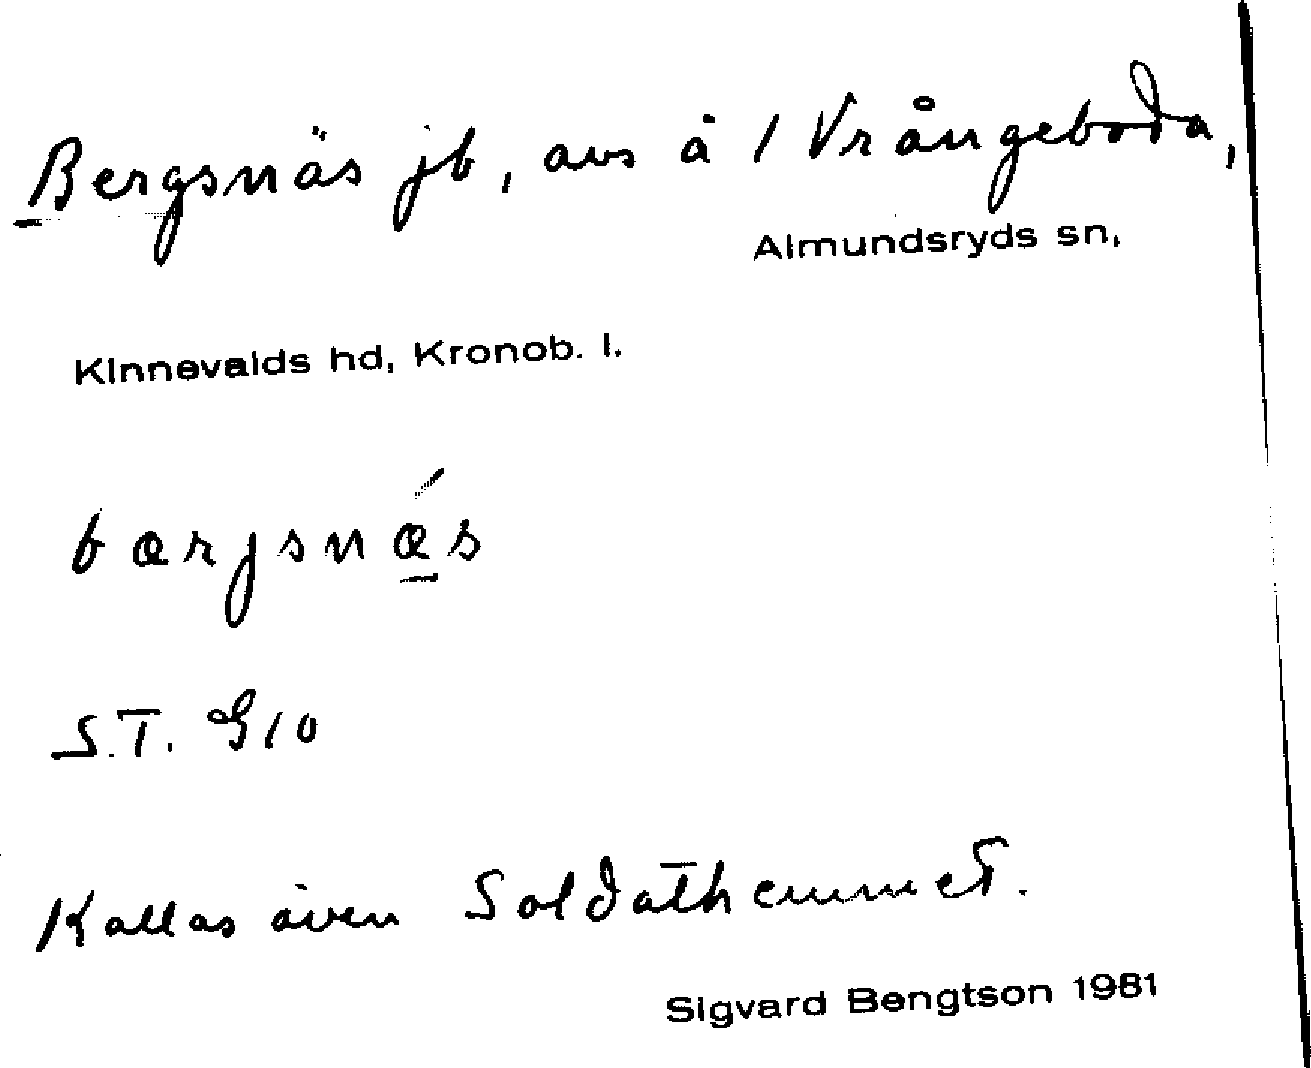 Bergsnäs jb, avs å 1 Vrångeboda,
Almundsryds sn,
Kinnevalds hd, Kronob. l.
bærjsnǽs
S.T. G10
Kallas även Soldathemmet.
Sigvard Bengtson 1981